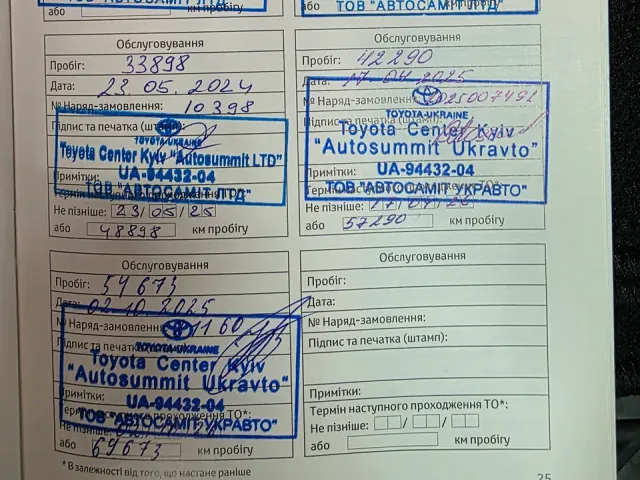 або км пробігу
ТОВ "АВТОСАМІТ ЛТД"
Обслуговування
Пробіг: 33898
Дата: 23.05.2024
№ Наряд-замовлення: 10398
Підпис та печатка (штамп):
TOYOTA-UKRAINE
Toyota Center Kyiv "Autosummit LTD"
UA-94432-04
Примітки:
ТОВ "АВТОСАМІТ ЛТД"
Не пізніше: 23/05/25
або 48898 км пробігу
Обслуговування
Пробіг: 42290
Дата: 17.04.2025
№ Наряд-замовлення:
Підпис та печатка (штамп):
TOYOTA-UKRAINE
Toyota Center Kyiv
"Autosummit Ukravto"
UA-94432-04
Примітки:
ТОВ "АВТОСАМІТ УКРАВТО"
Не пізніше: 17/04/26
або 57290 км пробігу
Обслуговування
Пробіг: 54673
Дата: 02.10.2025
№ Наряд-замовлення:
Підпис та печатка
TOYOTA-UKRAINE
Toyota Center Kyiv
"Autosummit Ukravto"
UA-94432-04
Примітки:
Термін наступного проходження ТО*:
ТОВ "АВТОСАМІТ УКРАВТО"
Не пізніше:
або 69673 км пробігу
Обслуговування
Пробіг:
Дата:
№ Наряд-замовлення:
Підпис та печатка (штамп):
Примітки:
Термін наступного проходження ТО*:
Не пізніше: / /
або км пробігу
* В залежності від того, що настане раніше
25